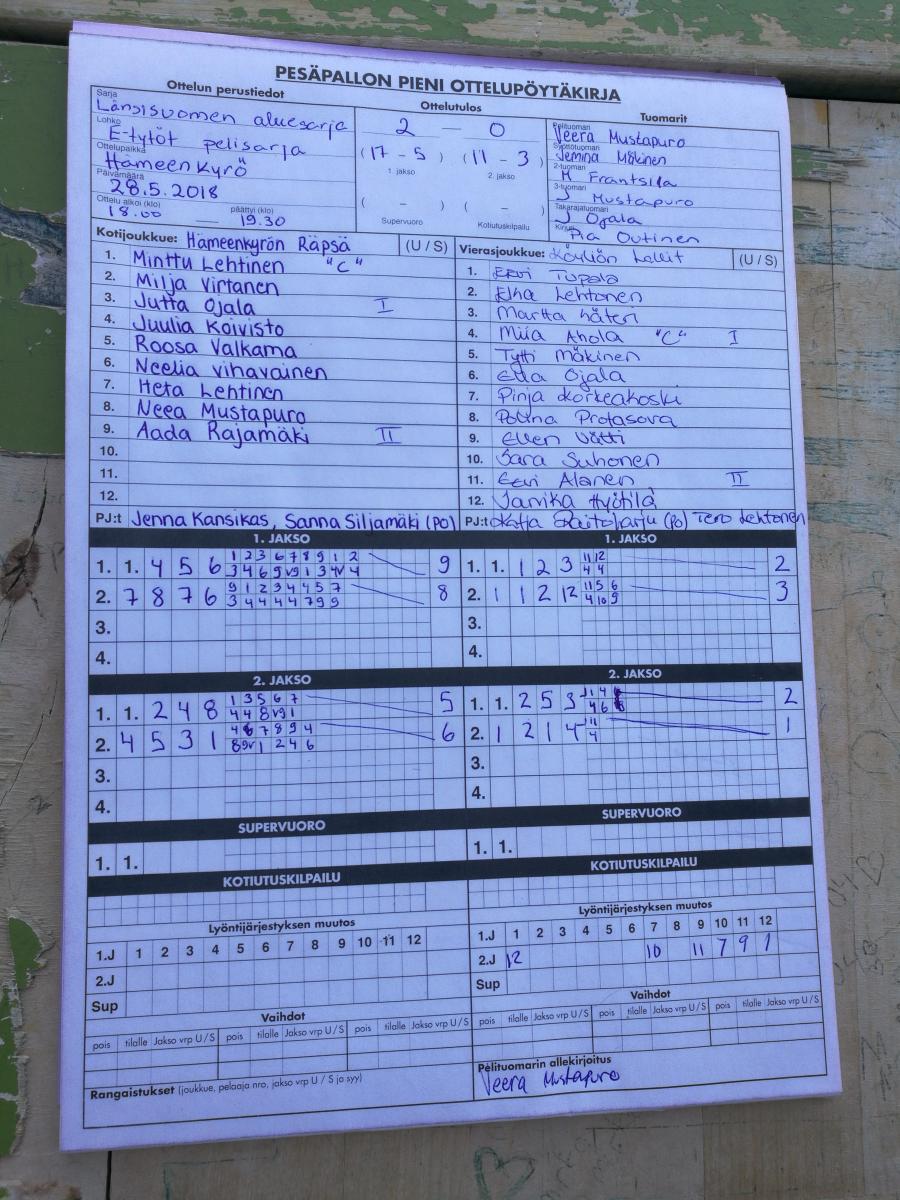 PESÄPALLON PIENI OTTELUPÖYTÄKIRJA
Ottelun perustiedot
Sarja
Länsisuomen aluesarja
Lohko
E-tytöt pelisarja
Ottelupaikka
Hämeenkyrö
Päivämäärä
28.5.2018
Ottelu alkoi (klo) päättyi (klo)
18.00 — 19.30
Ottelutulos
2 — 0
(17 - 5) (11 - 3)
1. jakso 2. jakso
( - ) ( - )
Supervuoro Kotiutuskilpailu
Tuomarit
Pelituomari
Veera Mustapuro
Syöttötuomari
Jemina Mökinen
2-tuomari
M Frantsila
3-tuomari
J Mustapuro
Takarajatuomari
J Ojala
Kirjuri
Pia Outinen
Kotijoukkue: Hämeenkyrön Räpsä (U / S)
1. Minttu Lehtinen "C"
2. Milja Virtanen
3. Jutta Ojala I
4. Juulia Koivisto
5. Roosa Valkama
6. Neelia Vihavainen
7. Heta Lehtinen
8. Neea Mustapuro
9. Aada Rajamäki II
10.
11.
12.
PJ:t Jenna Kansikas, Sanna Siljamäki (po)
Vierasjoukkue: Köyliön Lallit (U / S)
1. Eevi Tupala
2. Elna Lehtonen
3. Martta
4. Miia Ahola "C" I
5. Tytti Mäkinen
6. Ella Ojala
7. Pinja Korkeakoski
8. Polina Protasova
9. Ellen Vätti
10. Sara Suhonen
11. Eevi Alanen II
12. Janika Hyötilä
PJ:t Katja (po) Tero Lehtonen
1. JAKSO
1. 1. 4 5 6 1 2 3 6 7 8 9 1 2 9
3 4 6 9 v9 1 3 4v 4
2. 7 8 7 6 9 1 2 3 4 4 5 7 8
3 4 4 4 4 7 9 9
3.
4.
1. JAKSO
1. 1. 1 2 3 11 12 2
4 4
2. 1 1 2 12 11 5 6 3
4 10 9
3.
4.
2. JAKSO
1. 1. 2 4 8 1 3 5 6 7 5
4 4 8 v9 1
2. 4 5 3 1 4 6 7 8 9 4 6
8 9v 1 2 4 6
3.
4.
2. JAKSO
1. 1. 2 5 3 11 4 2
4 6
2. 1 2 1 4 11 1
4
3.
4.
SUPERVUORO
1. 1.
1. 1.
KOTIUTUSKILPAILU
KOTIUTUSKILPAILU
Lyöntijärjestyksen muutos
1.J 1 2 3 4 5 6 7 8 9 10 11 12
2.J
Sup
Lyöntijärjestyksen muutos
1.J 1 2 3 4 5 6 7 8 9 10 11 12
2.J 12 10 11 7 9 1
Sup
Vaihdot
pois tilalle Jakso vrp U / S pois tilalle Jakso vrp U / S pois tilalle Jakso vrp U / S
Vaihdot
pois tilalle Jakso vrp U / S pois tilalle Jakso vrp U / S pois tilalle Jakso vrp U / S
Rangaistukset (joukkue, pelaaja nro, jakso vrp U / S ja syy)
Pelituomarin allekirjoitus
Veera Mustapuro